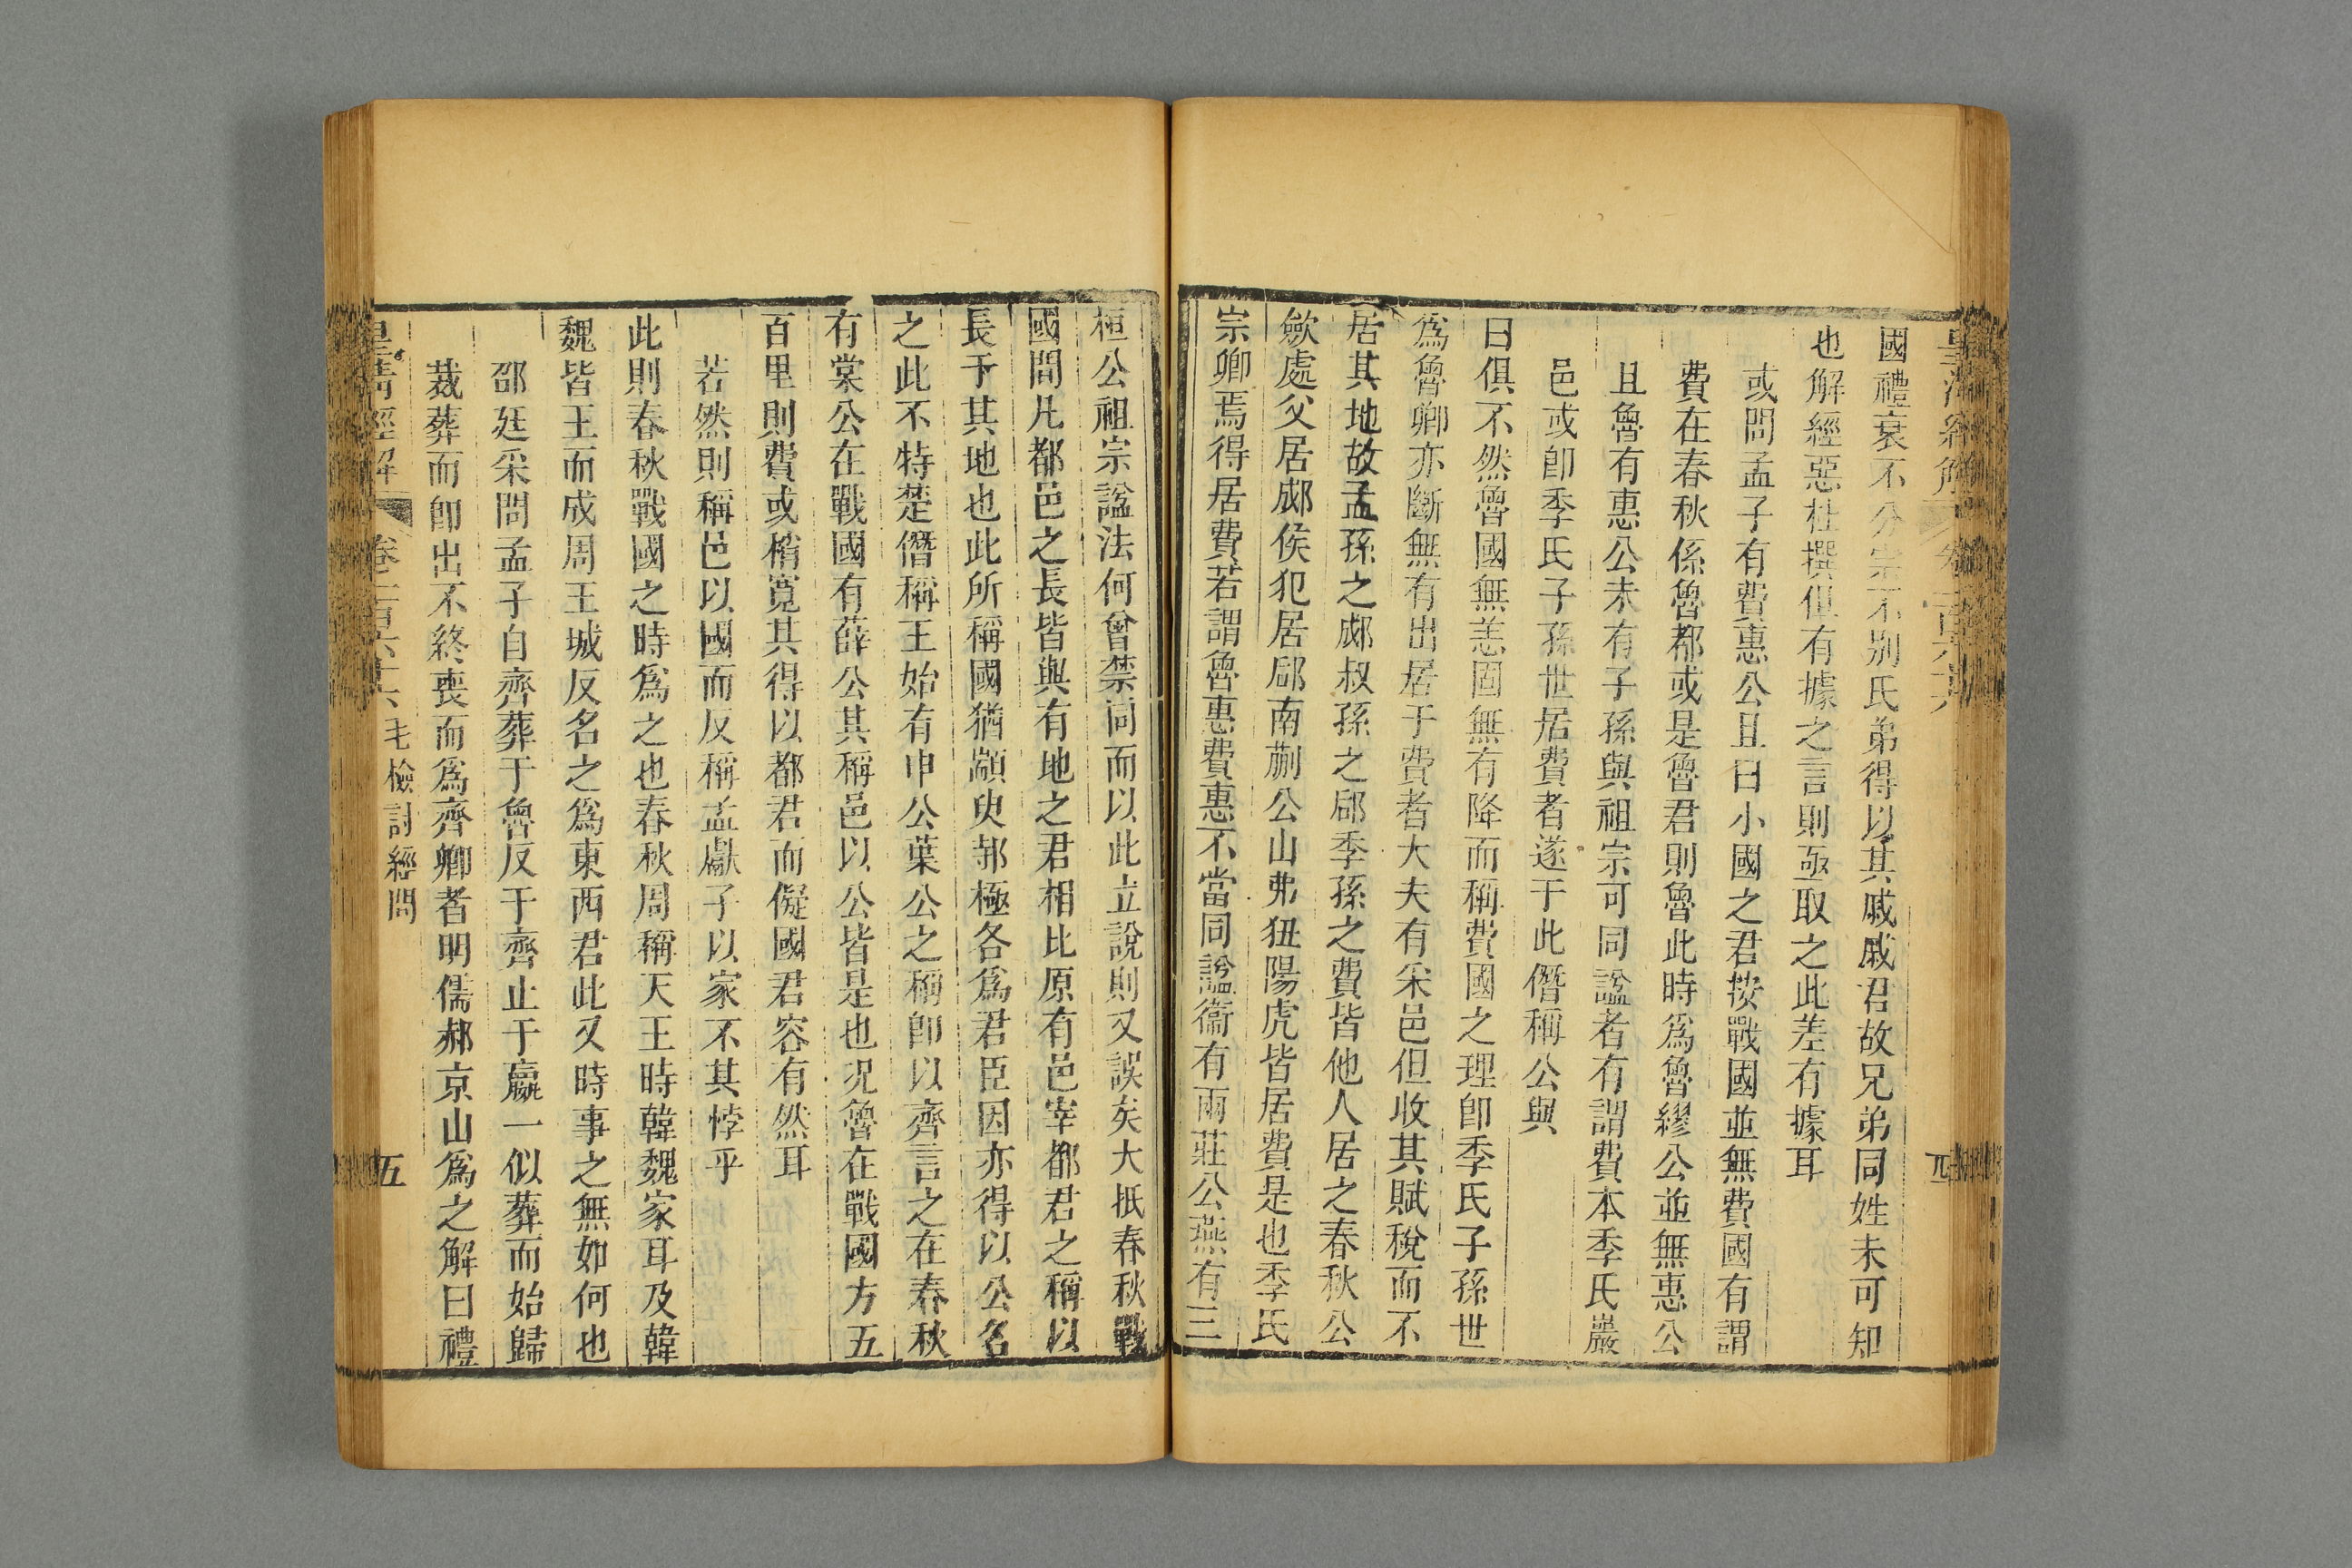 皇清經解 卷一百六十六 四
國禮衰不分宗不別氏弟得以其戚戚君故兄弟同姓未可知
也解經惡杜撰但有據之言則亟取之此差有據耳
或問孟子有費惠公且曰小國之君按戰國並無費國有謂
費在春秋係魯都或是魯君則魯此時爲魯繆公並無惠公
且魯有惠公未有子孫與祖宗可同謚者有謂費本季氏嚴
邑或卽季氏子孫世居費者遂于此僭稱公與
曰俱不然魯國無恙固無有降而稱費國之理卽季氏子孫世
爲魯卿亦斷無有出居于費者大夫有采邑但收其賦稅而不
居其地故孟孫之郕叔孫之郈季孫之費皆他人居之春秋公
歛處父居郕侯犯居郈南蒯公山弗狃陽虎皆居費是也季氏
宗卿焉得居費若謂魯惠費惠不當同謚衞有兩莊公燕有三
桓公祖宗謚法何曾禁同而以此立說則又誤矣大抵春秋戰
國間凡都邑之長皆與有地之君相比原有邑宰都君之稱以
長于其地也此所稱國猶顓臾郣極各爲君臣因亦得以公名
之此不特楚僭稱王始有申公葉公之稱卽以齊言之在春秋
有棠公在戰國有薛公其稱邑以公皆是也况魯在戰國方五
百里則費或稍寬其得以都君而儗國君容有然耳
若然則稱邑以國而反稱孟獻子以家不其悖乎
此則春秋戰國之時爲之也春秋周稱天王時韓魏家耳及韓
魏皆王而成周王城反名之爲東西君此又時事之無如何也
邵廷采問孟子自齊葬于魯反于齊止于嬴一似葬而始歸
葢葬而卽出不終喪而爲齊卿者明儒郝京山爲之解曰禮
皇清經解 卷一百六十六 毛檢討經問 五